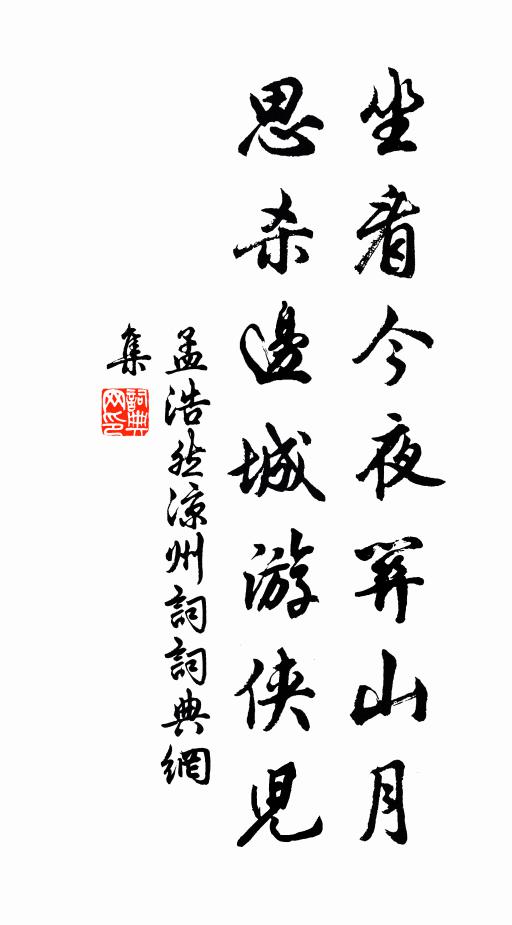 坐看今夜關山月
思杀邊城游俠児
孟浩然凉州詞詞典網
集
詞典
网印